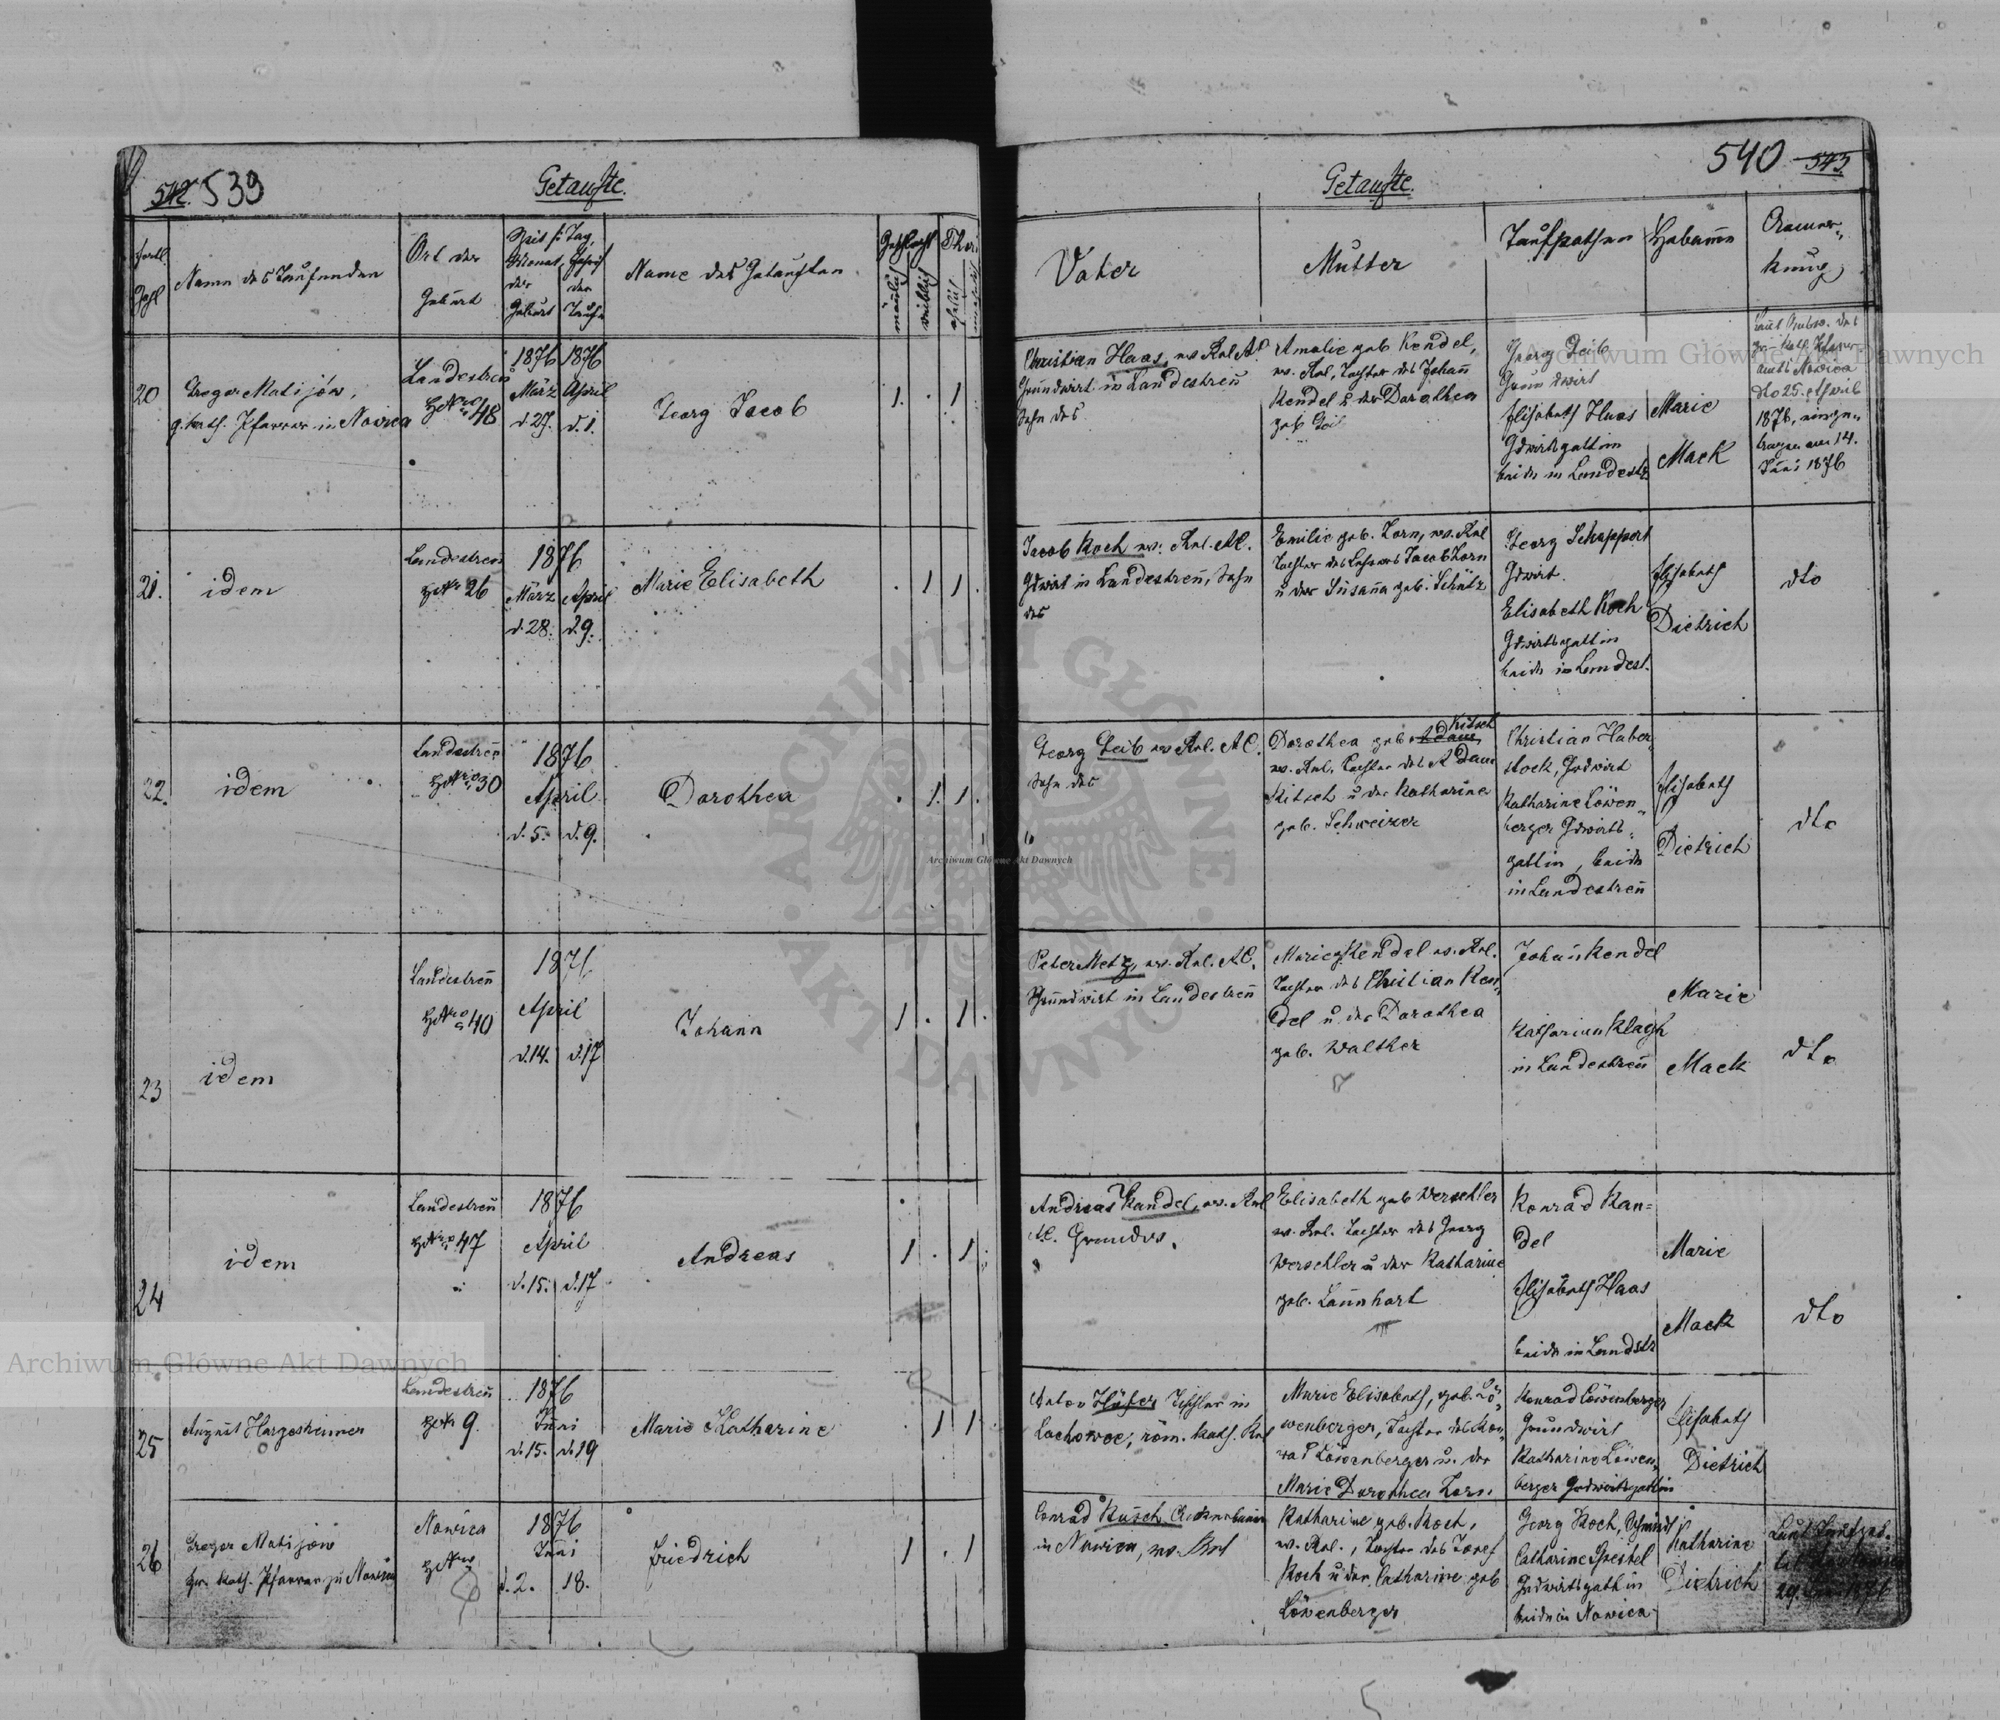 539
Getaufte
Name des Taufenden
Ort der
Geburt
Zeit f: Tag,
Monat,
der
Geburt
der
Taufe
Name des Getauften
Geschlecht
männlich
weiblich
20
Gregor Matijów,
g. kath. Pfarrer in Nowica
Landestreu
HNro 48
1876 1876
März April
d. 27. d. 1.
Georg Jacob
1. . 1
21.
idem
Landestreu
HNro 26
1876
März April
d. 28. d. 9.
Marie Elisabeth
. 1 1 .
22.
idem
Landestreu
HNro 30
1876
April
d. 5. d. 9.
Dorothea
. 1. 1.
23
idem
Landestreu
HNro 40
1876
April
d. 14. d. 17
Johann
1 . 1.
24
idem
Landestreu
HNro 47
1876
April
d. 15. d. 17
Andreas
1 . 1.
25
August Hargesheimer
Landestreu
HNr 9.
1876
Juni
d. 15. d. 19
Marie Katharine
1 1
26
Gregor Matijów
gr. kath. Pfarrer zu Nowica
Nowica
HNro
1876
Juni
d. 2. 18.
Friedrich
1 . 1
540 543
Getaufte.
Vater
Mutter
Taufpathen
Hebame
Anmer-
kung
Christian Haas, ev. Rel. A.C.
Grundwirt in Landestreu
Sohn des
Amalie geb Kendel,
ev. Rel, Tochter des Johan
Kendel u. der Dorothea
geb
Georg Leib
Grundwirt
Elisabeth Haas
Gdwirtsgattin
beide in Landestr
Marie
Mack
Laut des
gr-kath. Pfarr-
amts Nowica
dto 25. April
1876, einge-
tragen am 14.
Juni 1876
Jacob Koch ev. Rel. AC.
Gdwirt in Landestreu, Sohn
des
Emilie geb. Zorn, ev. Rel
Tochter des Jacob Zorn
u der Susana geb. Schütz
Georg Schappert
Gdwirt.
Elisabeth Koch
Gdwirtsgattin
beide in Landest.
Elisabeth
Dietrich
dto
Georg Leib ev Rel. A.C.
Sohn des
Kitsch
Dorothea geb Adam
ev. Rel. Tochter des Adam
Kitsch u der Katharine
geb. Schweizer
Christian Haber-
stock, Grdwirt
Katharine Löwen-
berger Gdwirts-
gattin, beide
in Landestreu
Elisabeth
Dietrich
dto
Peter Metz, ev. Rel. A.C.
Grundwirt in Landestreu
Marie Kendel ev. Rel.
Tochter des Christian Ken-
del u. der Dorothea
geb. Walther
Johan Kendel
Katharina Klagh
in Landestreu
Marie
Mack
dto
Andreas Kandel, ev. Rel
AC. Grundw.
Elisabeth geb Werschler
ev. Rel. Tochter des Georg
Werschler u der Katharine
geb. Launhart
Konrad Kan-
del
Elisabeth Haas
beide in Landstr
Marie
Mack
dto
Anton Tischler in
röm. kath. Rel
Marie Elisabeth, geb. Lö-
wenberger, Tochter des Kon-
rad Löwenberger u. der
Marie Dorothea Zorn.
Konrad Löwenberger
Grundwirt
Katharine Löwen-
berger Grdwirtsgattin
Elisabeth
Dietrich
Conrad Kusch
in Nowica, ev. Rel
Katharine geb. Koch,
ev. Rel., Tochter des Josef
Koch u der Catharine geb
Löwenberger
Georg Koch,
Catharine
Grdwirtsgattin
beide in Nowica
Katharine
Dietrich
Archiwum Główne Akt Dawnych
Archiwum Główne Akt Dawnych
Archiwum Główne Akt Dawnych
ARCHIWUM GŁÓWNE
AKT DAWNYCH